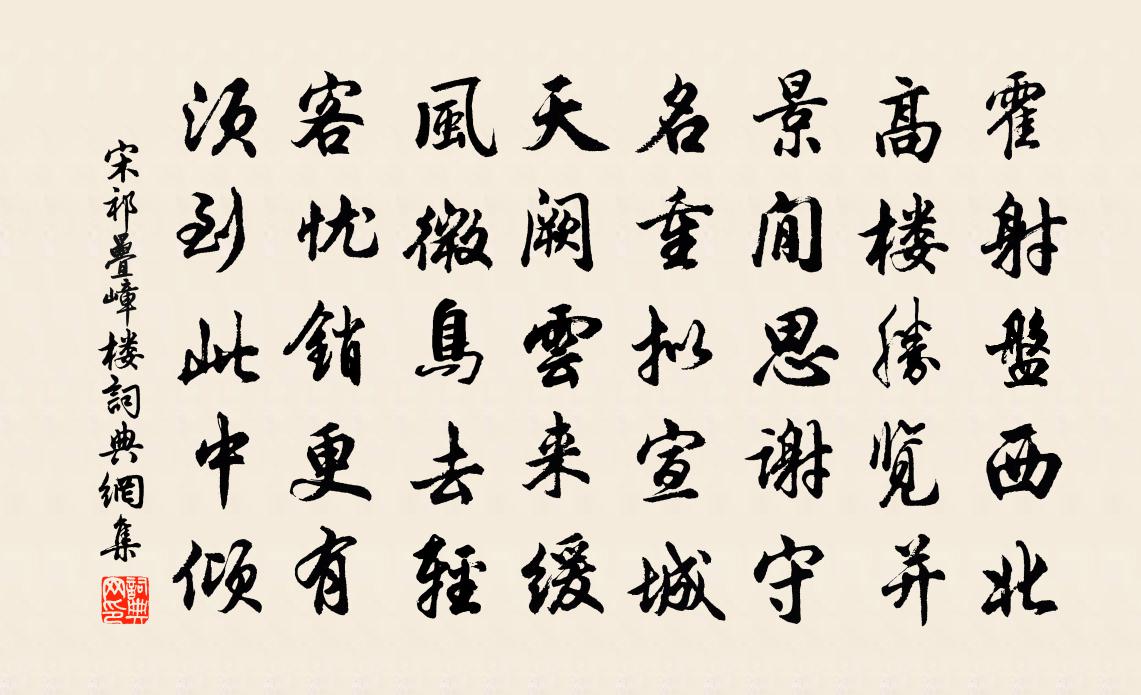 霍射盤西北
高楼勝览并
景閒思谢守
名重拟宣城
天阙雲来缓
風微鳥去輕
客忧銷更有
须到此中倾
宋祁疊嶂楼詞典網集
詞典网印